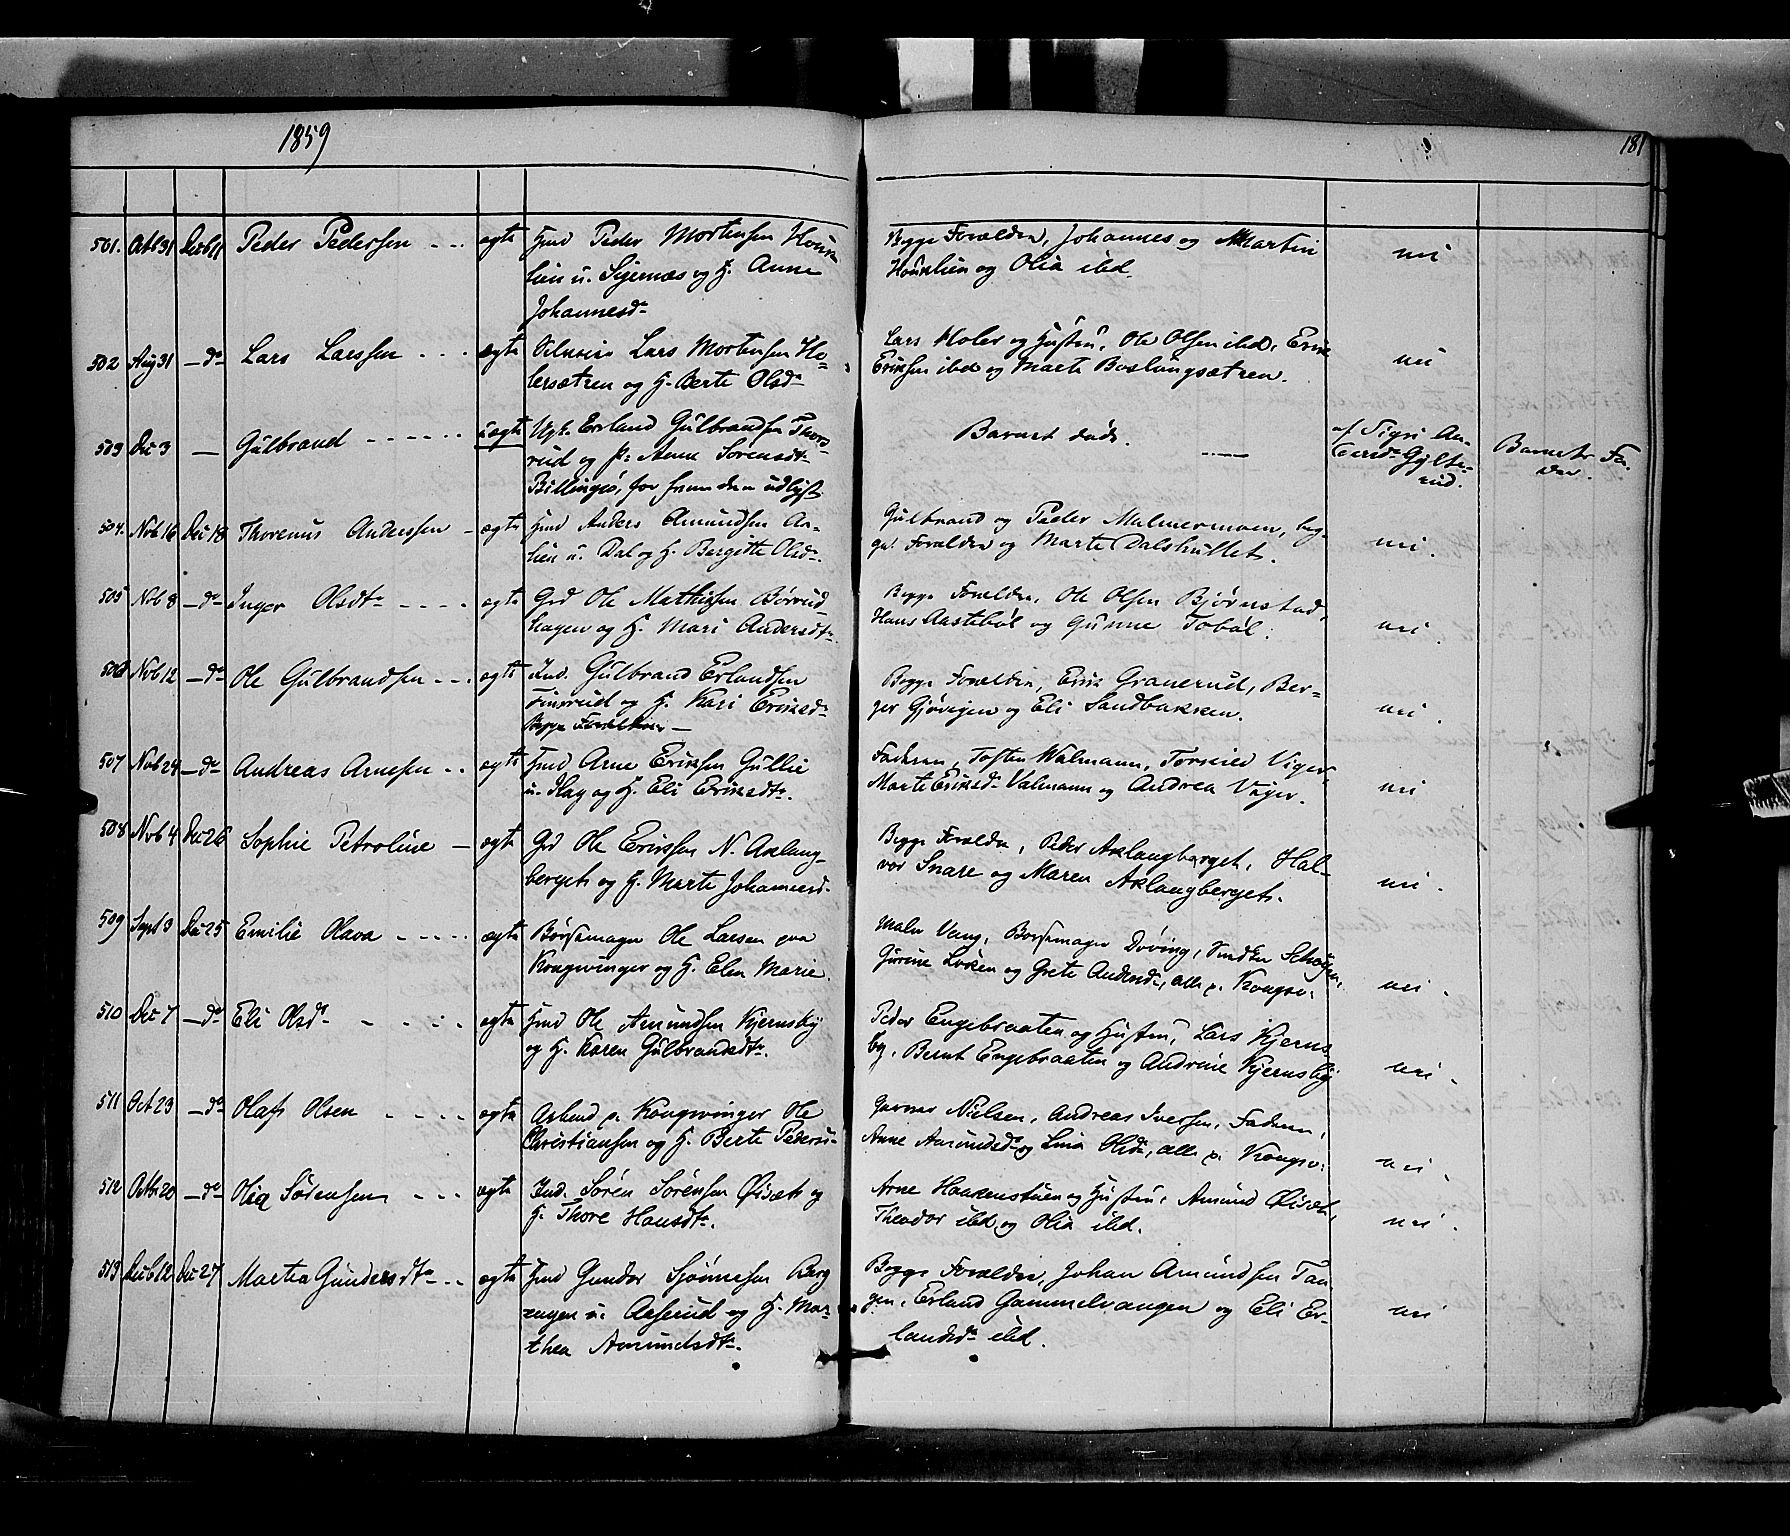 1859
181
501. Octb 31 Decb 11 Peder Pedersen - - - ægte Hmd Peder Mortensen Houk-
lien u. Sigernæs og H. Anne
Johannesdr
Begge Forældre, Johannes og Martin
Houklien og Olia ibd.
nei
502 Aug 31 - do Lars Larssen - - - ægte Lars Mortensen Ho-
lersætren og H. Berte Olsdr
Lars Holer og Hustru, Ole Olsen ibd, Erik
Eriksen ibd og Marte Baslungsætren.
nei
503 Dec 3 — Gulbrand - - - - - - uægte Ugk. Erland Gulbrandsen Thors-
rud og p. Anne Sørensdtr
Billingsø, for fremden udlyst
Barnet døde.
af Sigri An-
Gylte-
rud.
Barnets Fa-
der.
504. Nob 16 Dec 18 Thorenus Anderssen - ægte Hmd Anders Amundsen Aa-
lien u. Dal og H. Bergitte Olsdr.
Gulbrand og Peder Malmermoen, beg-
ge Forældre og Marte Dalshullet.
nei.
505 Nob 8 - do Inger Olsdtr - - - - ægte Grd Ole Mathisen Børrud-
hagen og H. Mari Andersdtr.
Begge Forældre, Ole Olsen Bjørnstad,
Hans Aastebøl og Gunne Tobøl.
nei.
506 Nob 12 - do Ole Gulbrandsen - - - ægte Ind. Gulbrand Erlandsen
Finrud og H. Kari Eriksdr
Begge Forældre —
Begge Forældre, Erik Granerud, Ber-
ger Gjøvigen og Eli Sandbakken.
nei.
507 Nob 24 - do Andreas Arnesen - - ægte Hmd Arne Eriksen Gullie
u. Hag og H. Eli Eriksdtr.
Faderen, Tosten Walmann, Torseie Viger,
Marte Eriksdr Valmann og Andrea Viger.
nei
508 Nob 4 Dec 26 Sophie Petroline - ægte Grd Ole Erikssen N. Aklang-
berget og H. Marte Johannesd.
Begge Forældre, Peder Aklangberget, Hal-
vor Snare og Maren Aklangberget.
nei.
509 Sept 3 Dec 25 Emilie Olava - - - - ægte Børsemager Ole Larsen paa
Kongsvinger og H. Elen Marie.
Maler Vang, Børsemager Døving, Snedker
Gurine Løken og Grete Andersdr, alle p. Kongsv.
nei.
510 Dec 7 - do Eli Olsdr - - - - ægte Hmd Ole Amundsen Kjernsby
og H. Karen Gulbrandsdtr.
Peder Engebraaten og Hustru, Lars Kjerns-
by, Bernt Engebraaten og Andrine Kjernsby
nei.
511 Oct 23 - do Olaf Olsen - - - - ægte Arbmd p. Kongsvinger Ole
Christiansen og H. Berte Peders-
Gunnar Nielsen, Andreas Iversen, Faderen,
Anne Amundsdr og Lina Olsdr, alle p. Kongsv.
nei.
512 Octb 20 - do Olia Sørensen - - - ægte Ind. Søren Sørensen Øisæt og
H. Thore Hansdtr.
Arne Haakenstuen og Hustru, Amund Øisæt,
Theodor ibd og Olia ibd.
nei.
513 Decb 12 Dec 27 Martea Gundersdtr - - ægte Hmd Gunder Sjønnesen Berg
engen u. Aaserud og H. Mar-
thea Amundsdtr.
Begge Forældre, Johan Amundsen Tan-
gen, Erland Gammelvangen og Eli Er-
landsdr ibd.
nei